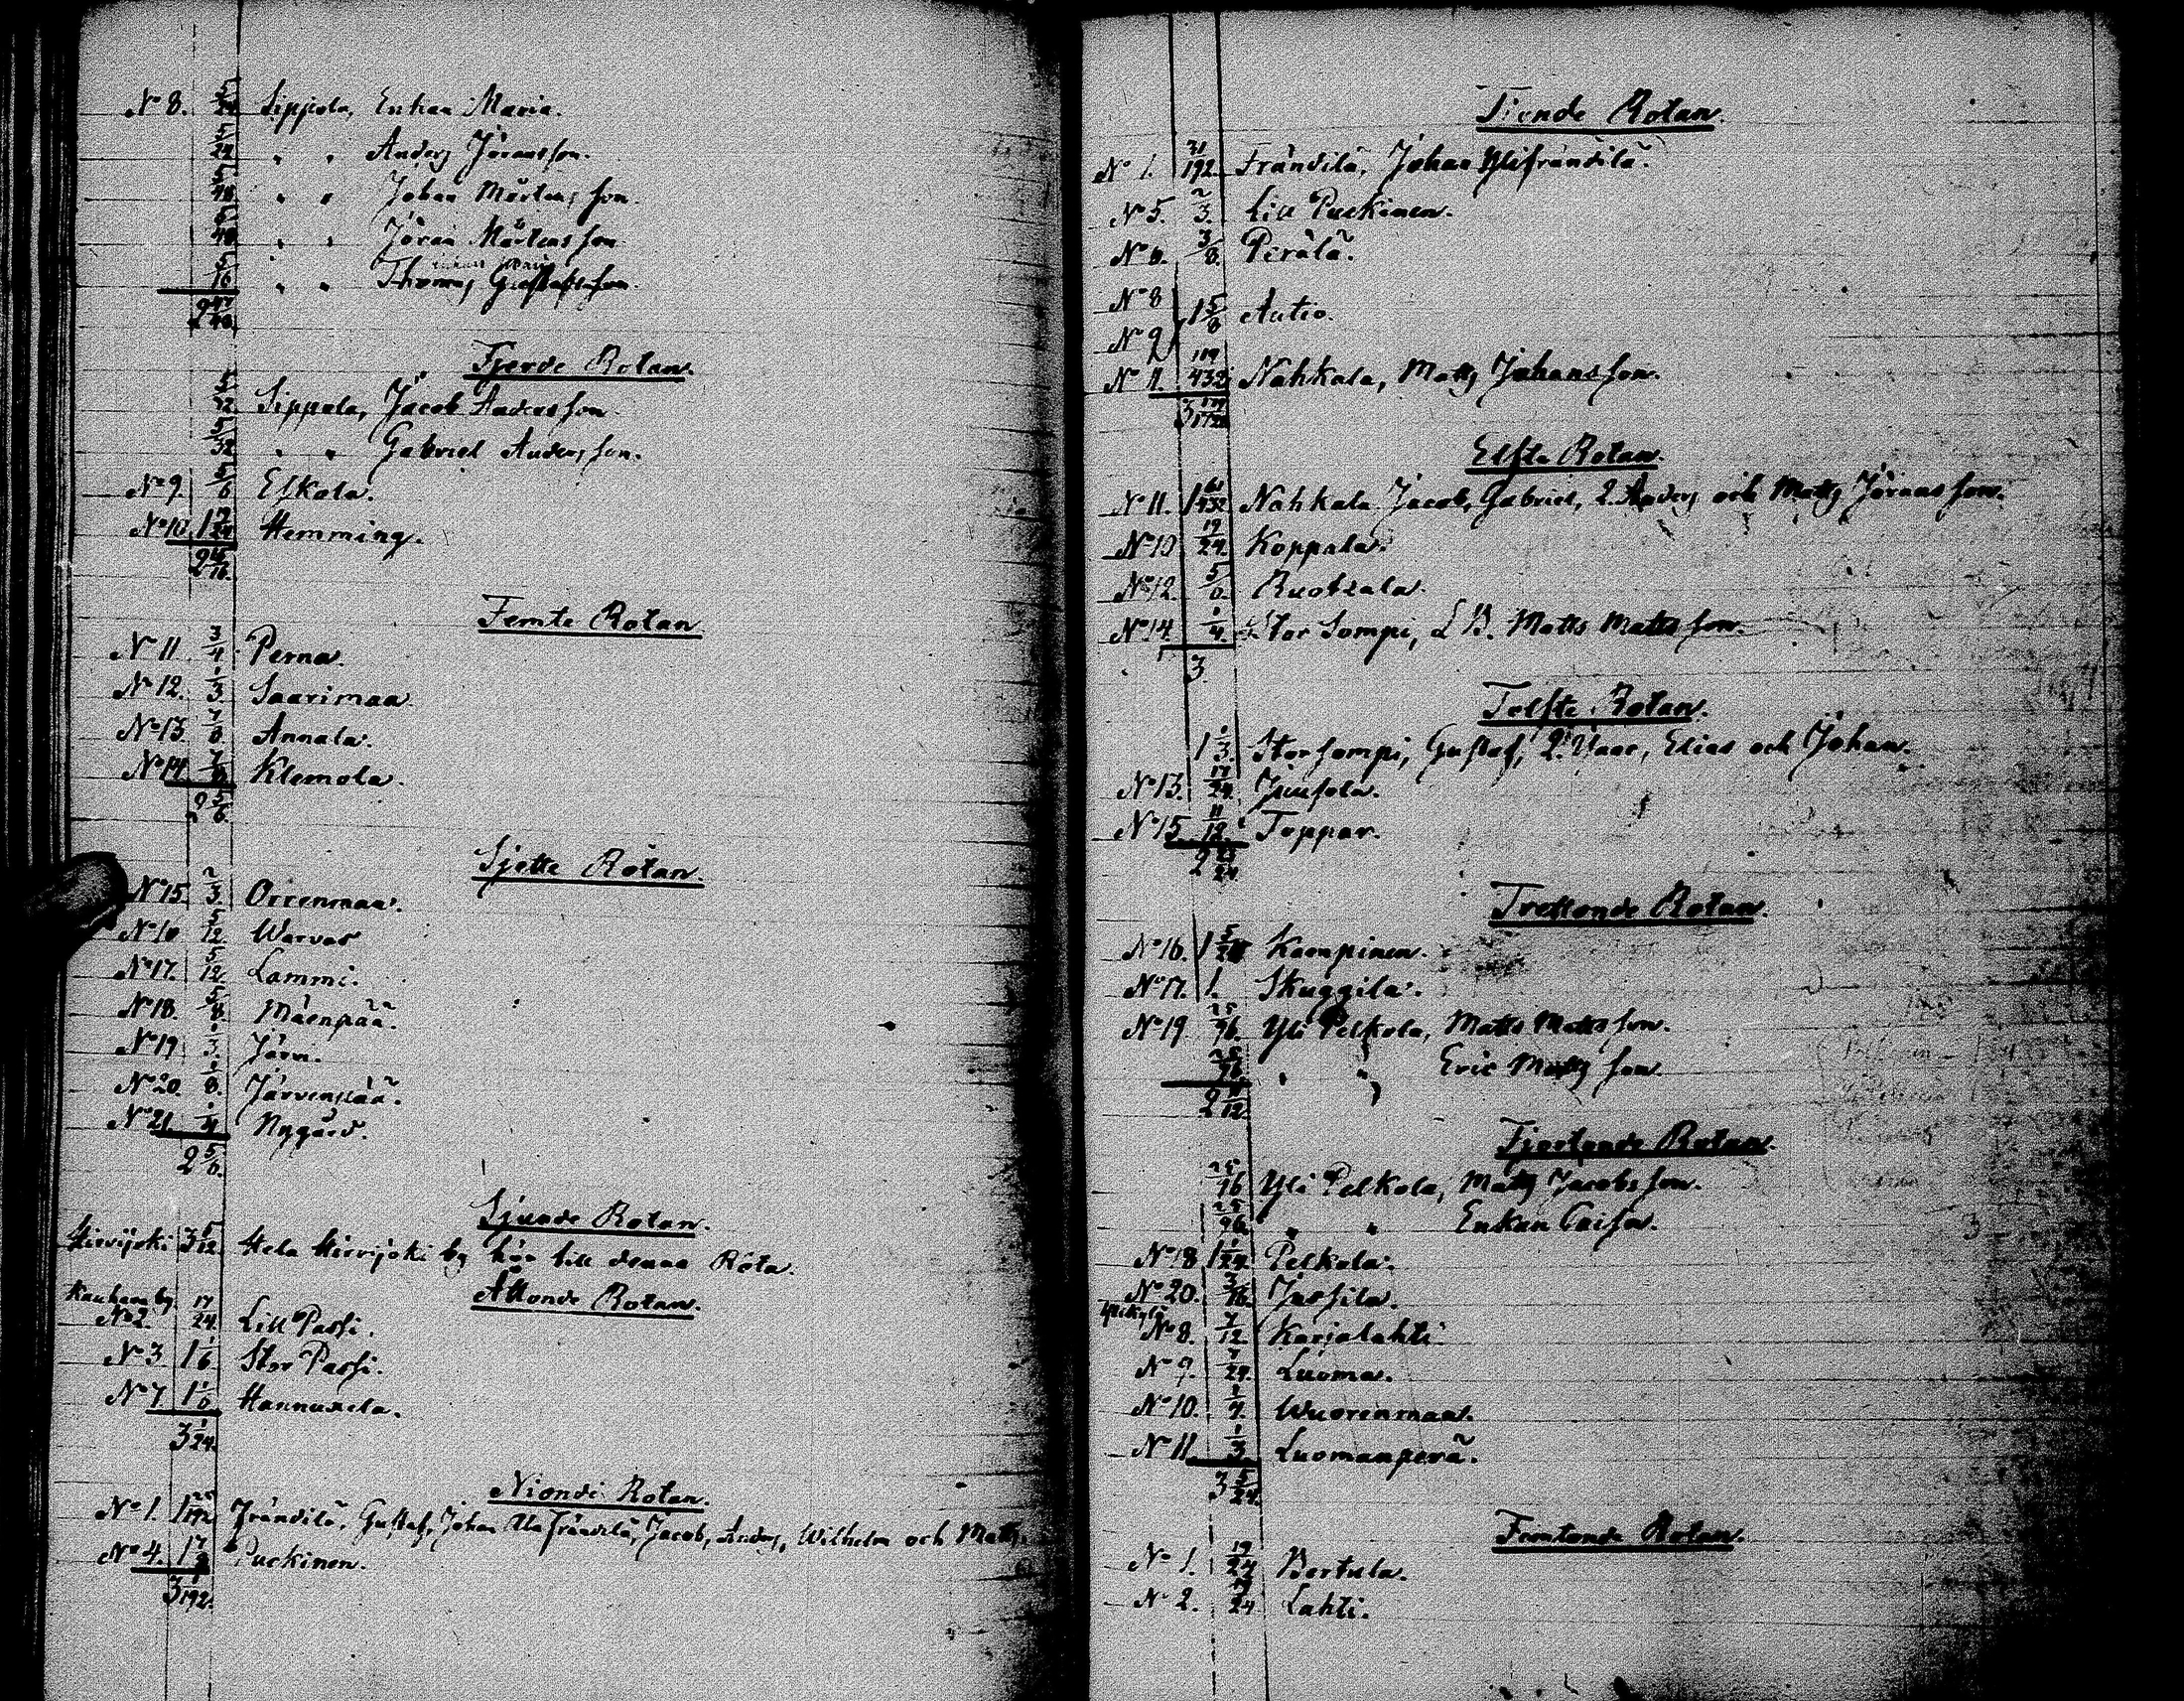 No 8. 5/24 Sippola, Enkan Maria.
5/24 " " Anders Jöransson.
5/48 " " Johan Mårtensson.
5/48 " " Jöran Mårtensson
5/16 " " Thomas Gustafsson.
Fjerde Rotan.
5/32 Sippola, Jacob Andersson.
5/32 " " Gabriel Andersson.
No 9. 5/6 Eskola.
No 10. Hemming.
2
Femte Rotan
No 11 3/4 Perna.
No 12. 1/3 Saarimaa.
No 13. 7/8 Annala.
No 14. 7/8 Klemola.
2 5/6.
Sjette Rotan.
No 15. 2/3 Orrenmaa.
No 16 5/12. Warvas
No 17. 5/12. Lammi.
No 18. 5/8. Mäenpää.
No 19 1/3. Järvi.
No 20. 1/8. Järvenpää.
No 21. 1/4 Nygård.
2 5/6.
Sjunde Rotan.
Hirvijoki 3 5/12 Hela Hirvijoki by hör till denna Rota.
Åttonde Rotan.
Kauhava by
No 2. 17/24. Lill Passi.
No 3 1 1/6 Stor Passi.
No 7 1 1/6 Hannuxela.
3 1/24.
Nionde Rotan.
No 1. Frändilä, Gustaf, Johan Ala frändilä, Jacob, Anders, Wilhelm och Matts.
No 4. 1 7/8 Puckinen.
3 1/192.
Tionde Rotan.
No 1. 31/192. Frändilä, Johan Ylifrändilä.
No 5. 2/3. Lill Puckinen.
No 6. 3/8. Perälä.
No 8
1 5/8 Autio.
No 9
No 11. 119/432 Nahkala, Matts Johansson.
3
Elfte Rotan.
No 11. 1 61/432 Nahkala Jacob, Gabriel, 2. Anders och Matts Jöransson.
No 10 19/24. Koppala.
No 12. 5/6. Ruotzala.
No 14 1/4. Stor Sompi, L B. Matts Mattsson.
3.
Tolfte Rotan.
1 1/3. Stor Sompi, Gustaf, 2. Isaac, Elias och Johan.
No 13. 17/24. Juusola.
No 15 11/12. Toppar.
2 23/24
Trettonde Rotan.
No 16. 1 5/24 Kaenpinen.
No 17. 1. Skuggila.
No 19 25/96. Yli Pelkola, Matts Mattsson.
25/96 " " Eric Mattsson
2
Fjortonde Rotan.
25/96 Yli Pelkola, Matts Jacobsson.
25/96. " " Enkan Caisa.
No 18 1 1/24. Pelkola.
No 20. 3/16. Jussila.
Ylikylä
No 8. 7/12 Karjalahti
No 9. 7/24. Luoma.
No 10. 1/4. Wuorenmaa.
No 11. 1/3. Luomanperä.
3 5/24.
Femtonde Rotan.
No 1. 19/24 Bertula.
No 2. 19/24 Lahti.